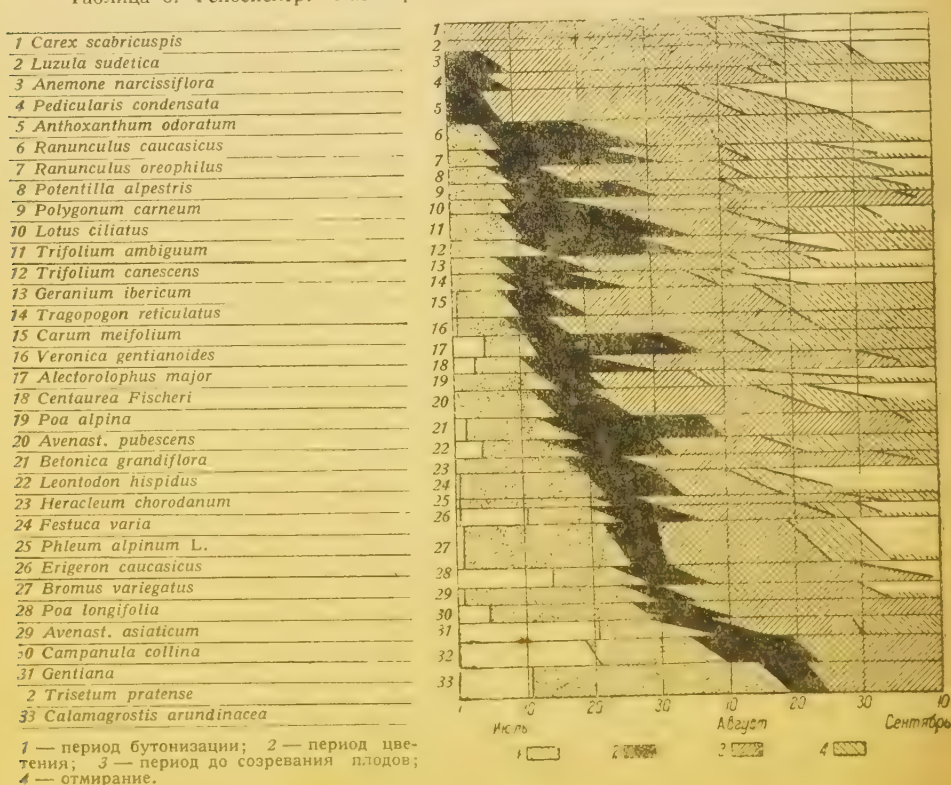 Таблица
1 Carex scabricuspis
2 Luzula sudetica
3 Anemone narcissiflora
4 Pedicularis condensata
5 Anthoxanthum odoratum
6 Ranunculus caucasicus
7 Ranunculus oreophilus
8 Potentilla alpestris
9 Polygonum carneum
10 Lotus ciliatus
11 Trifolium ambiguum
12 Trifolium canescens
13 Geranium ibericum
14 Tragopogon reticulatus
15 Carum meifolium
16 Veronica gentianoides
17 Alectorolophus major
18 Centaurea Fischeri
19 Poa alpina
20 Avenast. pubescens
21 Betonica grandiflora
22 Leontodon hispidus
23 Heracleum chorodanum
24 Festuca varia
25 Phleum alpinum L.
26 Erigeron caucasicus
27 Bromus variegatus
28 Poa longifolia
29 Avenast. asiaticum
30 Campanula collina
31 Gentiana
2 Trisetum pratense
33 Calamagrostis arundinacea
1 — период бутонизации; 2 — период цве-
тения; 3 — период до созревания плодов;
4 — отмирание.
1
2
3
4
5
6
7
8
9
10
11
12
13
14
15
16
17
18
19
20
21
22
23
24
25
26
27
28
29
30
31
32
33
1 10 20 30 10 20 30 10
Июль Август Сентябрь
1 2 3 4